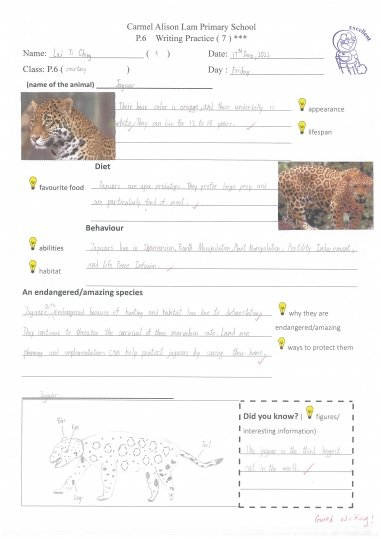 Carmel Alison Lam Primary School
P.6 Writing Practice ( 7 ) ***
Excellent
Name: Lai Yi Ching ( 9 ) Date: 17th June, 2022
Class: P.6 ( courtesy ) Day : Friday
(name of the animal) Jaguar
Their base color is orange, and their underbelly is
white. They can live for 12 to 15 years.
appearance
lifespan
Diet
favourite food
Jaguars are apex predators. They prefer large prey and
are particularly fond of meat.
Behaviour
abilities
habitat
Jaguars live in Manipulation, Earth Manipulation, Plant Manipulation, Fertility Inducement,
and Life Force
An endangered/amazing species
Jaguars are endangered because of hunting and habitat loss due to deforestation.
They continue to threaten the survival of these marvelous cats. Land use
planning and implementation can help protect jaguars by saving their homes.
why they are
endangered/amazing
ways to protect them
Jaguar
Ear
Eye
Tail
Legs
Did you know? ( figures/
interesting information)
The jaguar is the third biggest
cat in the world.
Good writing!